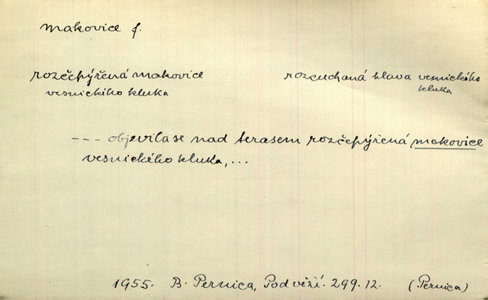 makovice f.
rozčepýřená makovice
vesnického kluka
rozcuchaná hlava vesnického
kluka
--- objevila se nad terasem rozčepýřená makovice
vesnického kluka, ...
1955. B. Pernica, Podvěží. 299.12. (Pernica)